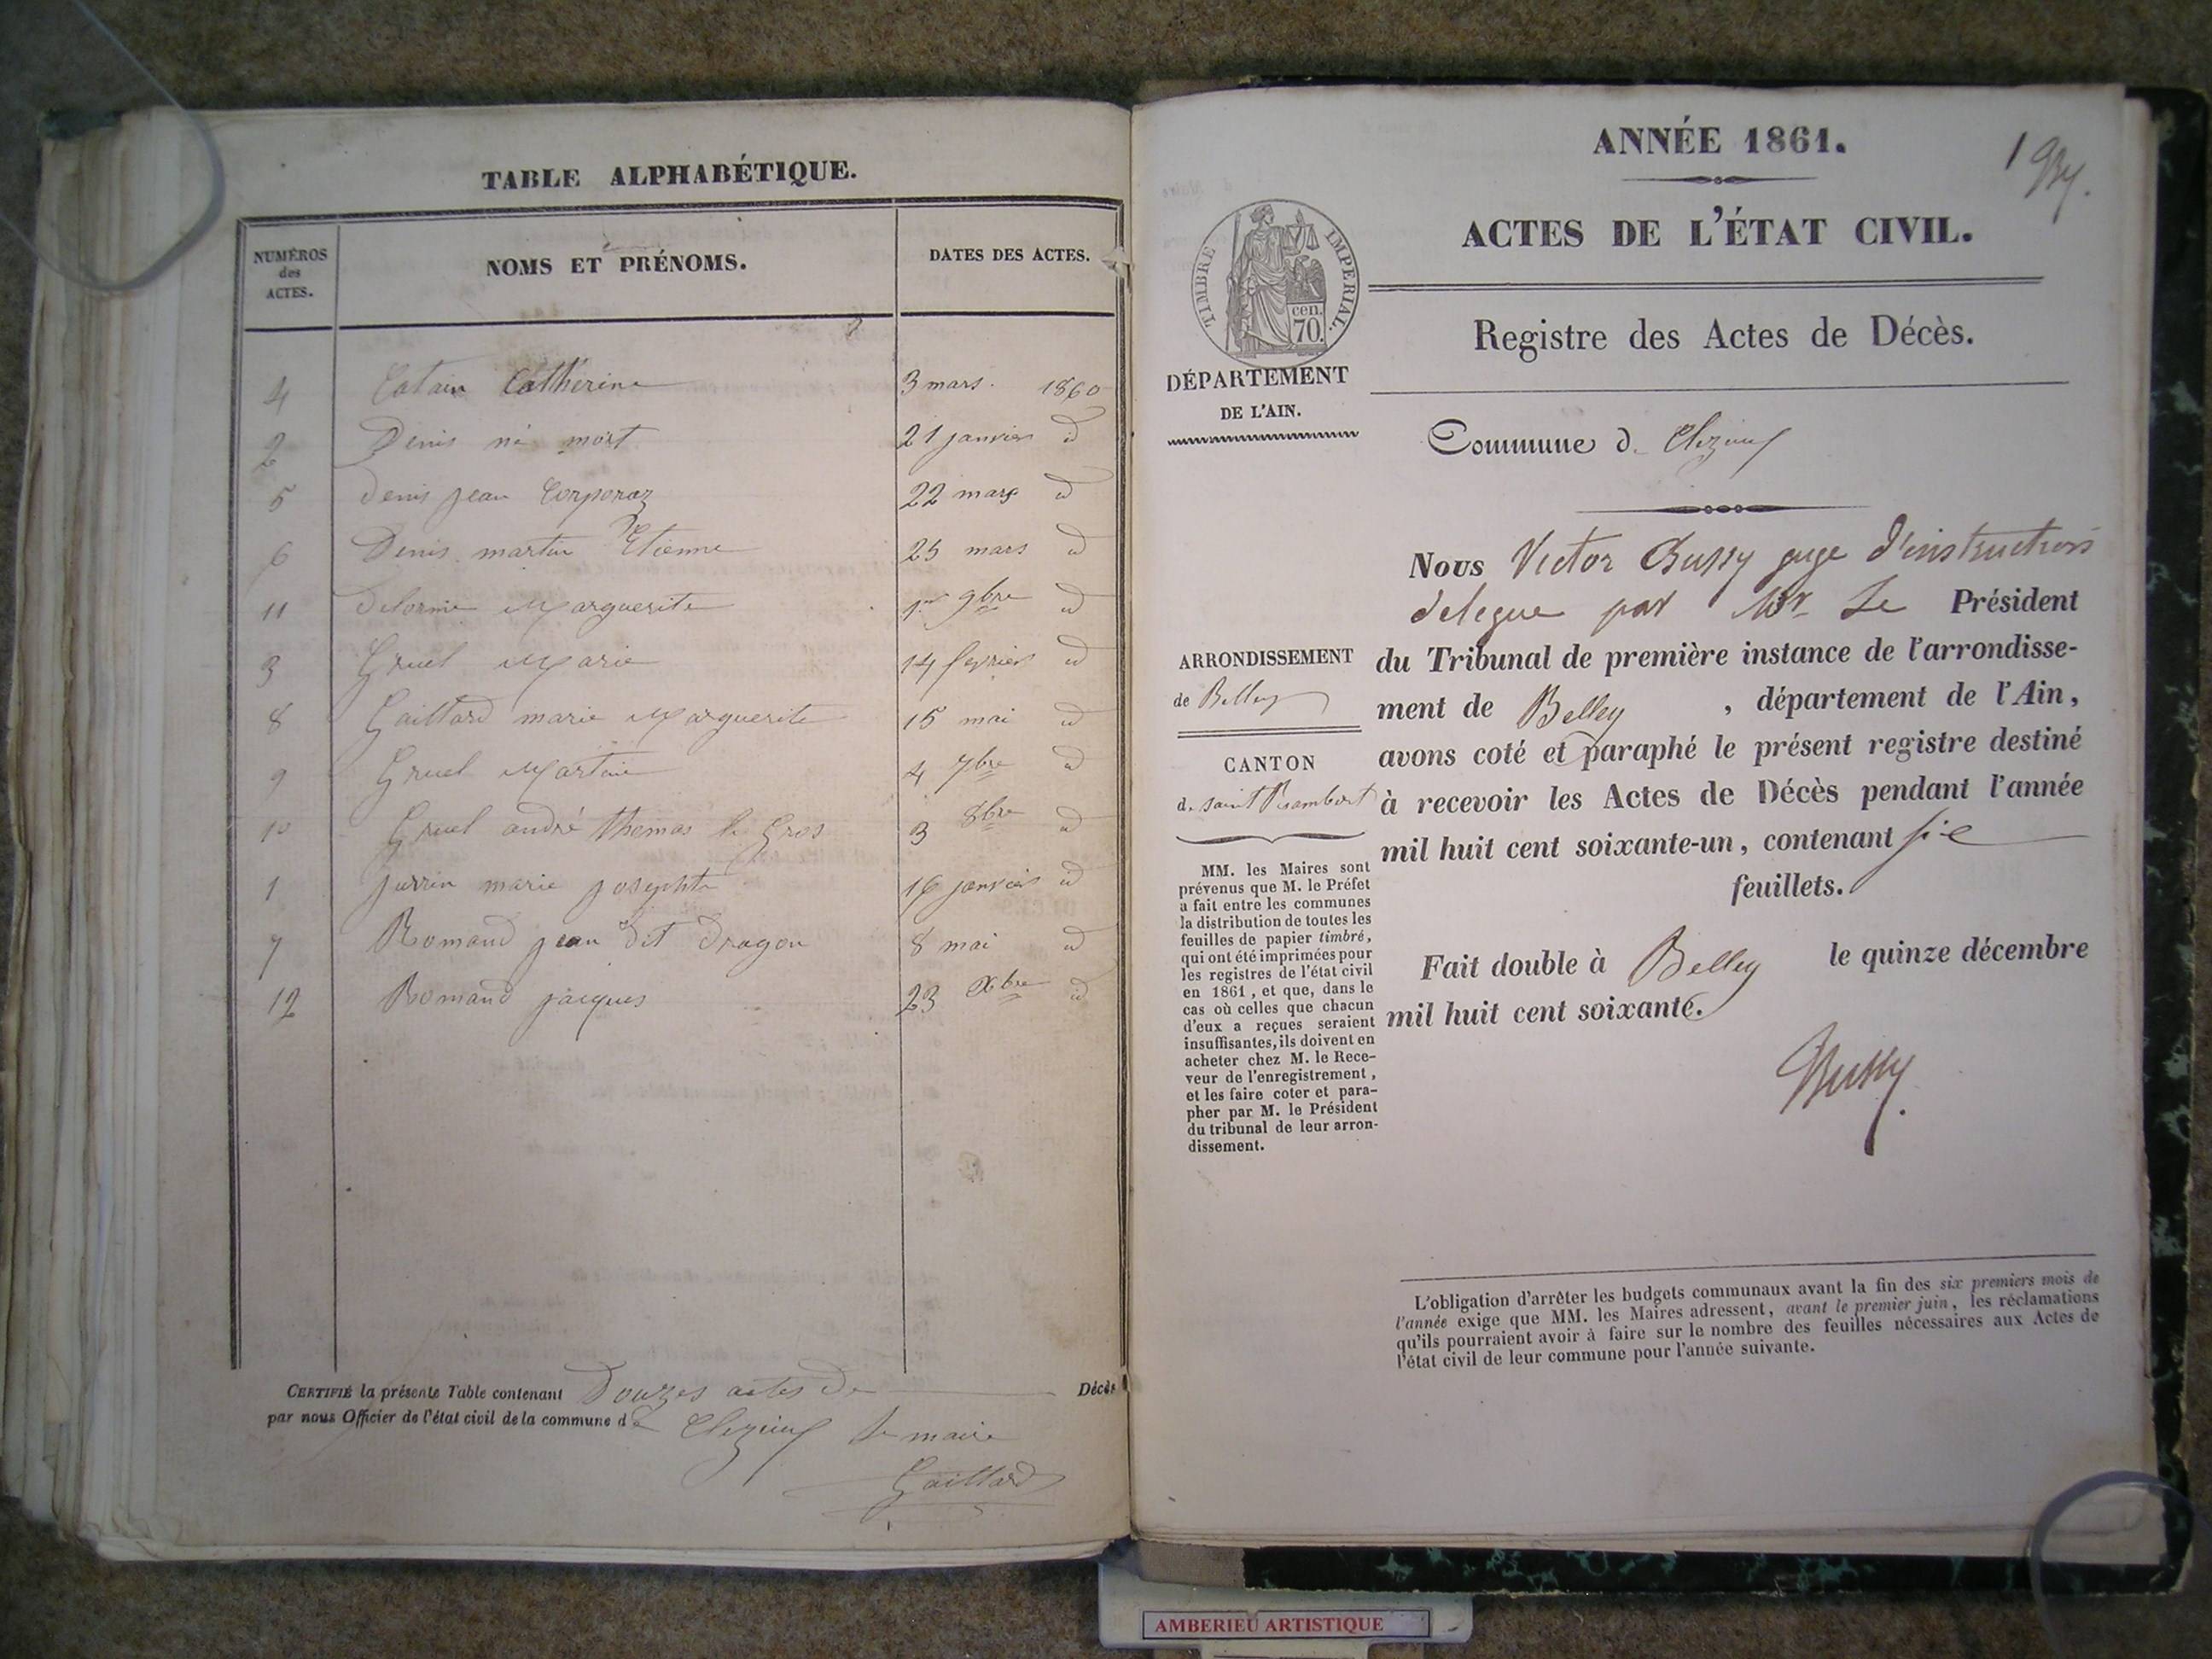 TABLE ALPHABÉTIQUE.
NUMÉROS des ACTES.
NOMS ET PRÉNOMS.
DATES DES ACTES.
4 Catain Catherine 3 mars. 1860
2 Denis né mort 21 janvier id
5 Denis jean Corporaz 22 mars id
6 Denis martin Etienne 25 mars id
11 Delorme Marguerite 1er 9bre id
3 Gruel Marie 14 fevrier id
8 Gaillard marie Marguerite 15 mai id
9 Gruel Martin 4 7bre id
10 Gruel andré thomas le Gros 3 8bre id
1 jurrin marie josephte 16 janvier id
7 Romand jean dit dragon 8 mai id
12 Romand jacques 23 Xbre id
CERTIFIÉ la présente Table contenant Douzes actes de Décès
par nous Officier de l'état civil de la commune de Cleyzieu le maire
Gaillard
ANNÉE 1861.
1 By.
ACTES DE L'ÉTAT CIVIL.
TIMBRE IMPERIAL.
cen.
70.
Registre des Actes de Décès.
DÉPARTEMENT
DE L'AIN.
Commune d. Cleyzieu
Nous Victor Bussy juge d'instruction
delegue par Mr Le Président
du Tribunal de première instance de l'arrondisse-
ment de Belley , département de l'Ain,
avons coté et paraphé le présent registre destiné
à recevoir les Actes de Décès pendant l'année
mil huit cent soixante-un, contenant six
feuillets.
Fait double à Belley le quinze décembre
mil huit cent soixante.
Bussy.
ARRONDISSEMENT
de Belley
CANTON
d. saint Rambert
MM. les Maires sont
prévenus que M. le Préfet
a fait entre les communes
la distribution de toutes les
feuilles de papier timbré,
qui ont été imprimées pour
les registres de l'état civil
en 1861, et que, dans le
cas où celles que chacun
d'eux a reçues seraient
insuffisantes, ils doivent en
acheter chez M. le Rece-
veur de l'enregistrement,
et les faire coter et para-
pher par M. le Président
du tribunal de leur arron-
dissement.
L'obligation d'arrêter les budgets communaux avant la fin des six premiers mois de
l'année exige que MM. les Maires adressent, avant le premier juin, les réclamations
qu'ils pourraient avoir à faire sur le nombre des feuilles nécessaires aux Actes de
l'état civil de leur commune pour l'année suivante.
AMBERIEU ARTISTIQUE